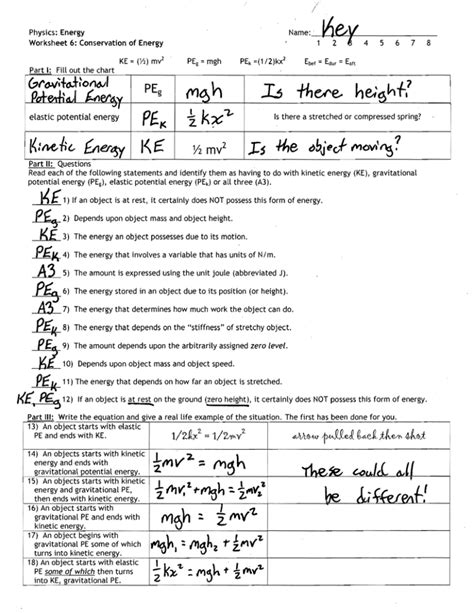 Physics: Energy
Name: Key
Worksheet 6: Conservation of Energy
1 2 3 4 5 6 7 8
KE = (½) mv² PEg = mgh PEk =(1/2)kx² Ebef = Edur = Eaft
Part I: Fill out the chart
Gravitational Potential Energy PEg mgh Is there height?
elastic potential energy PEK ½ kx² Is there a stretched or compressed spring?
Kinetic Energy KE ½ mv² Is the object moving?
Part II: Questions
Read each of the following statements and identify them as having to do with kinetic energy (KE), gravitational
potential energy (PEg), elastic potential energy (PEk) or all three (A3).
KE 1) If an object is at rest, it certainly does NOT possess this form of energy.
PEg 2) Depends upon object mass and object height.
KE 3) The energy an object possesses due to its motion.
PEK 4) The energy that involves a variable that has units of N/m.
A3 5) The amount is expressed using the unit joule (abbreviated J).
PEg 6) The energy stored in an object due to its position (or height).
A3 7) The energy that determines how much work the object can do.
PEK 8) The energy that depends on the "stiffness" of stretchy object.
PEg 9) The amount depends upon the arbitrarily assigned zero level.
KE 10) Depends upon object mass and object speed.
PEK 11) The energy that depends on how far an object is stretched.
KE, PEg 12) If an object is at rest on the ground (zero height), it certainly does NOT possess this form of energy.
Part III: Write the equation and give a real life example of the situation. The first has been done for you.
13) An object starts with elastic
PE and ends with KE.
1/2kx² = 1/2mv²
arrow pulled back then shot
14) An object starts with kinetic
energy and ends with
gravitational potential energy.
½mv² = mgh
These could all
be different!
15) An object starts with kinetic
energy and gravitational PE,
then ends with kinetic energy.
½mv₁² + mgh = ½mv₂²
16) An object starts with
gravitational PE and ends with
kinetic energy.
mgh = ½mv²
17) An object begins with
gravitational PE some of which
turns into kinetic energy.
mgh₁ = mgh₂ + ½mv²
18) An object starts with elastic
PE some of which then turns
into KE, gravitational PE.
½kx² = ½mv² + mgh